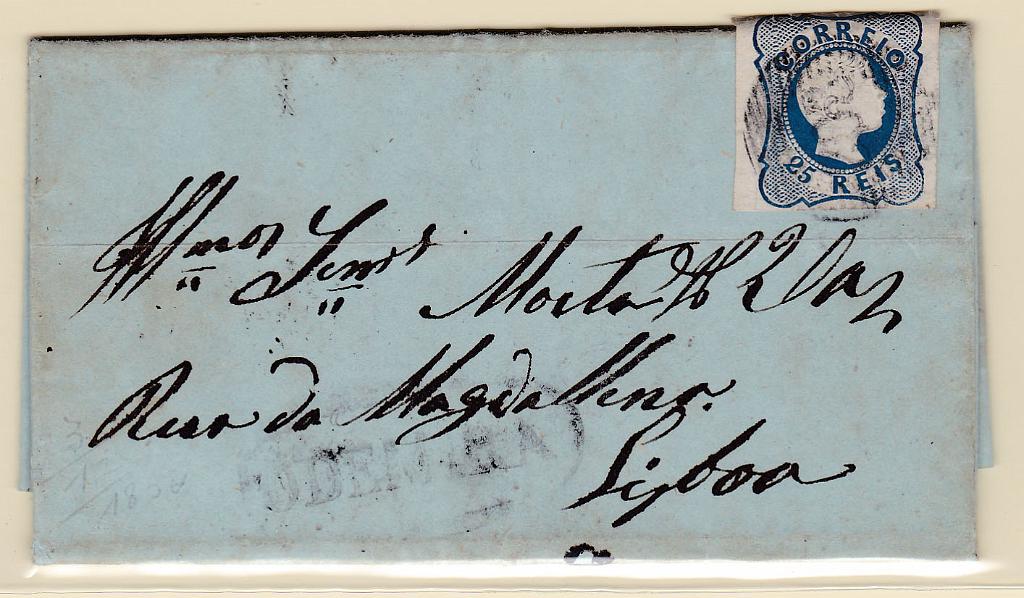 CORREIO
25 REIS
Illmos Senrs Motta & Vaz
Rua da Magdallena.
Lisboa